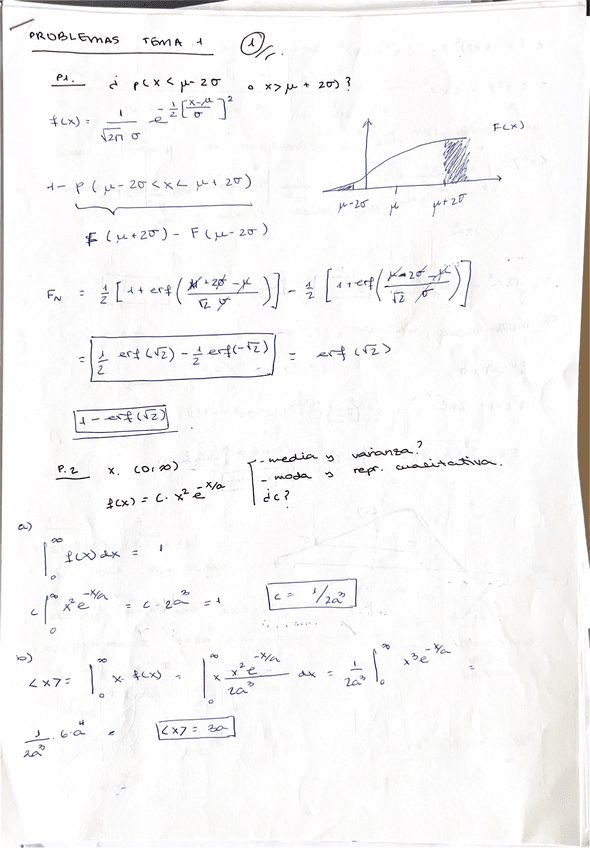 PROBLEMAS TEMA 1 1/,.
P1. ¿ p(x < μ-2σ o x > μ + 2σ)?
f(x) = 1/(√2π σ) e^(-1/2 [(x-μ)/σ]^2)
F(x)
1 - p(μ-2σ < x < μ+2σ)
μ-2σ μ μ+2σ
F(μ+2σ) - F(μ-2σ)
F_N = 1/2 [1 + erf((μ+2σ-μ)/(√2 σ))] - 1/2 [1 + erf((μ-2σ-μ)/(√2 σ))]
= 1/2 erf(√2) - 1/2 erf(-√2) = erf(√2)
1 - erf(√2)
P.2 x. (0,∞)
- media y varianza?
- moda y repr. cualitativa.
f(x) = c · x² e^(-x/a)
¿c?
a)
∫_0^∞ f(x) dx = 1
c ∫_0^∞ x² e^(-x/a) = c · 2a³ = 1 c = 1/2a³
b)
<x> = ∫_0^∞ x · f(x) = ∫_0^∞ x (x² e^(-x/a))/(2a³) dx = 1/(2a³) ∫_0^∞ x³ e^(-x/a) =
1/(2a³) · 6·a⁴ = <x> = 3a